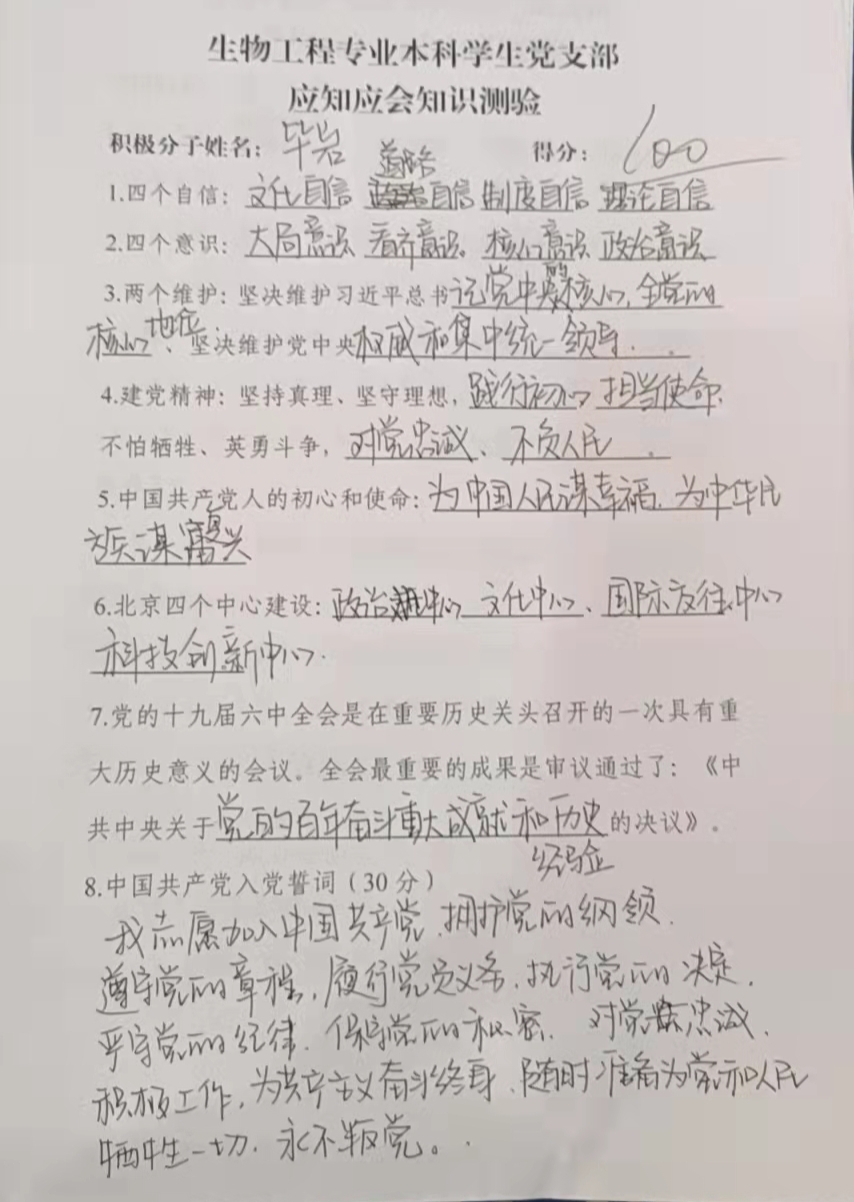 生物工程专业本科学生党支部
应知应会知识测验
积极分子姓名：毕岩 得分：100
1.四个自信：文化自信 道路自信 制度自信 理论自信
2.四个意识：大局意识 看齐意识、核心意识 政治意识
3.两个维护：坚决维护习近平总书记党中央的核心，全党的
核心地位、坚决维护党中央权威和集中统一领导.。
4.建党精神：坚持真理、坚守理想，践行初心 担当使命，
不怕牺牲、英勇斗争，对党忠诚、不负人民。
5.中国共产党人的初心和使命：为中国人民谋幸福、为中华民
族谋复兴
6.北京四个中心建设：政治中心 文化中心、国际交往中心
科技创新中心.
7.党的十九届六中全会是在重要历史关头召开的一次具有重
大历史意义的会议。全会最重要的成果是审议通过了：《中
共中央关于党的百年奋斗重大成就和历史经验的决议》。
8.中国共产党入党誓词（30分）
我志愿加入中国共产党，拥护党的纲领，
遵守党的章程，履行党员义务，执行党的决定，
严守党的纪律，保守党的秘密，对党忠诚，
积极工作，为共产主义奋斗终身，随时准备为党和人民
牺牲一切，永不叛党。